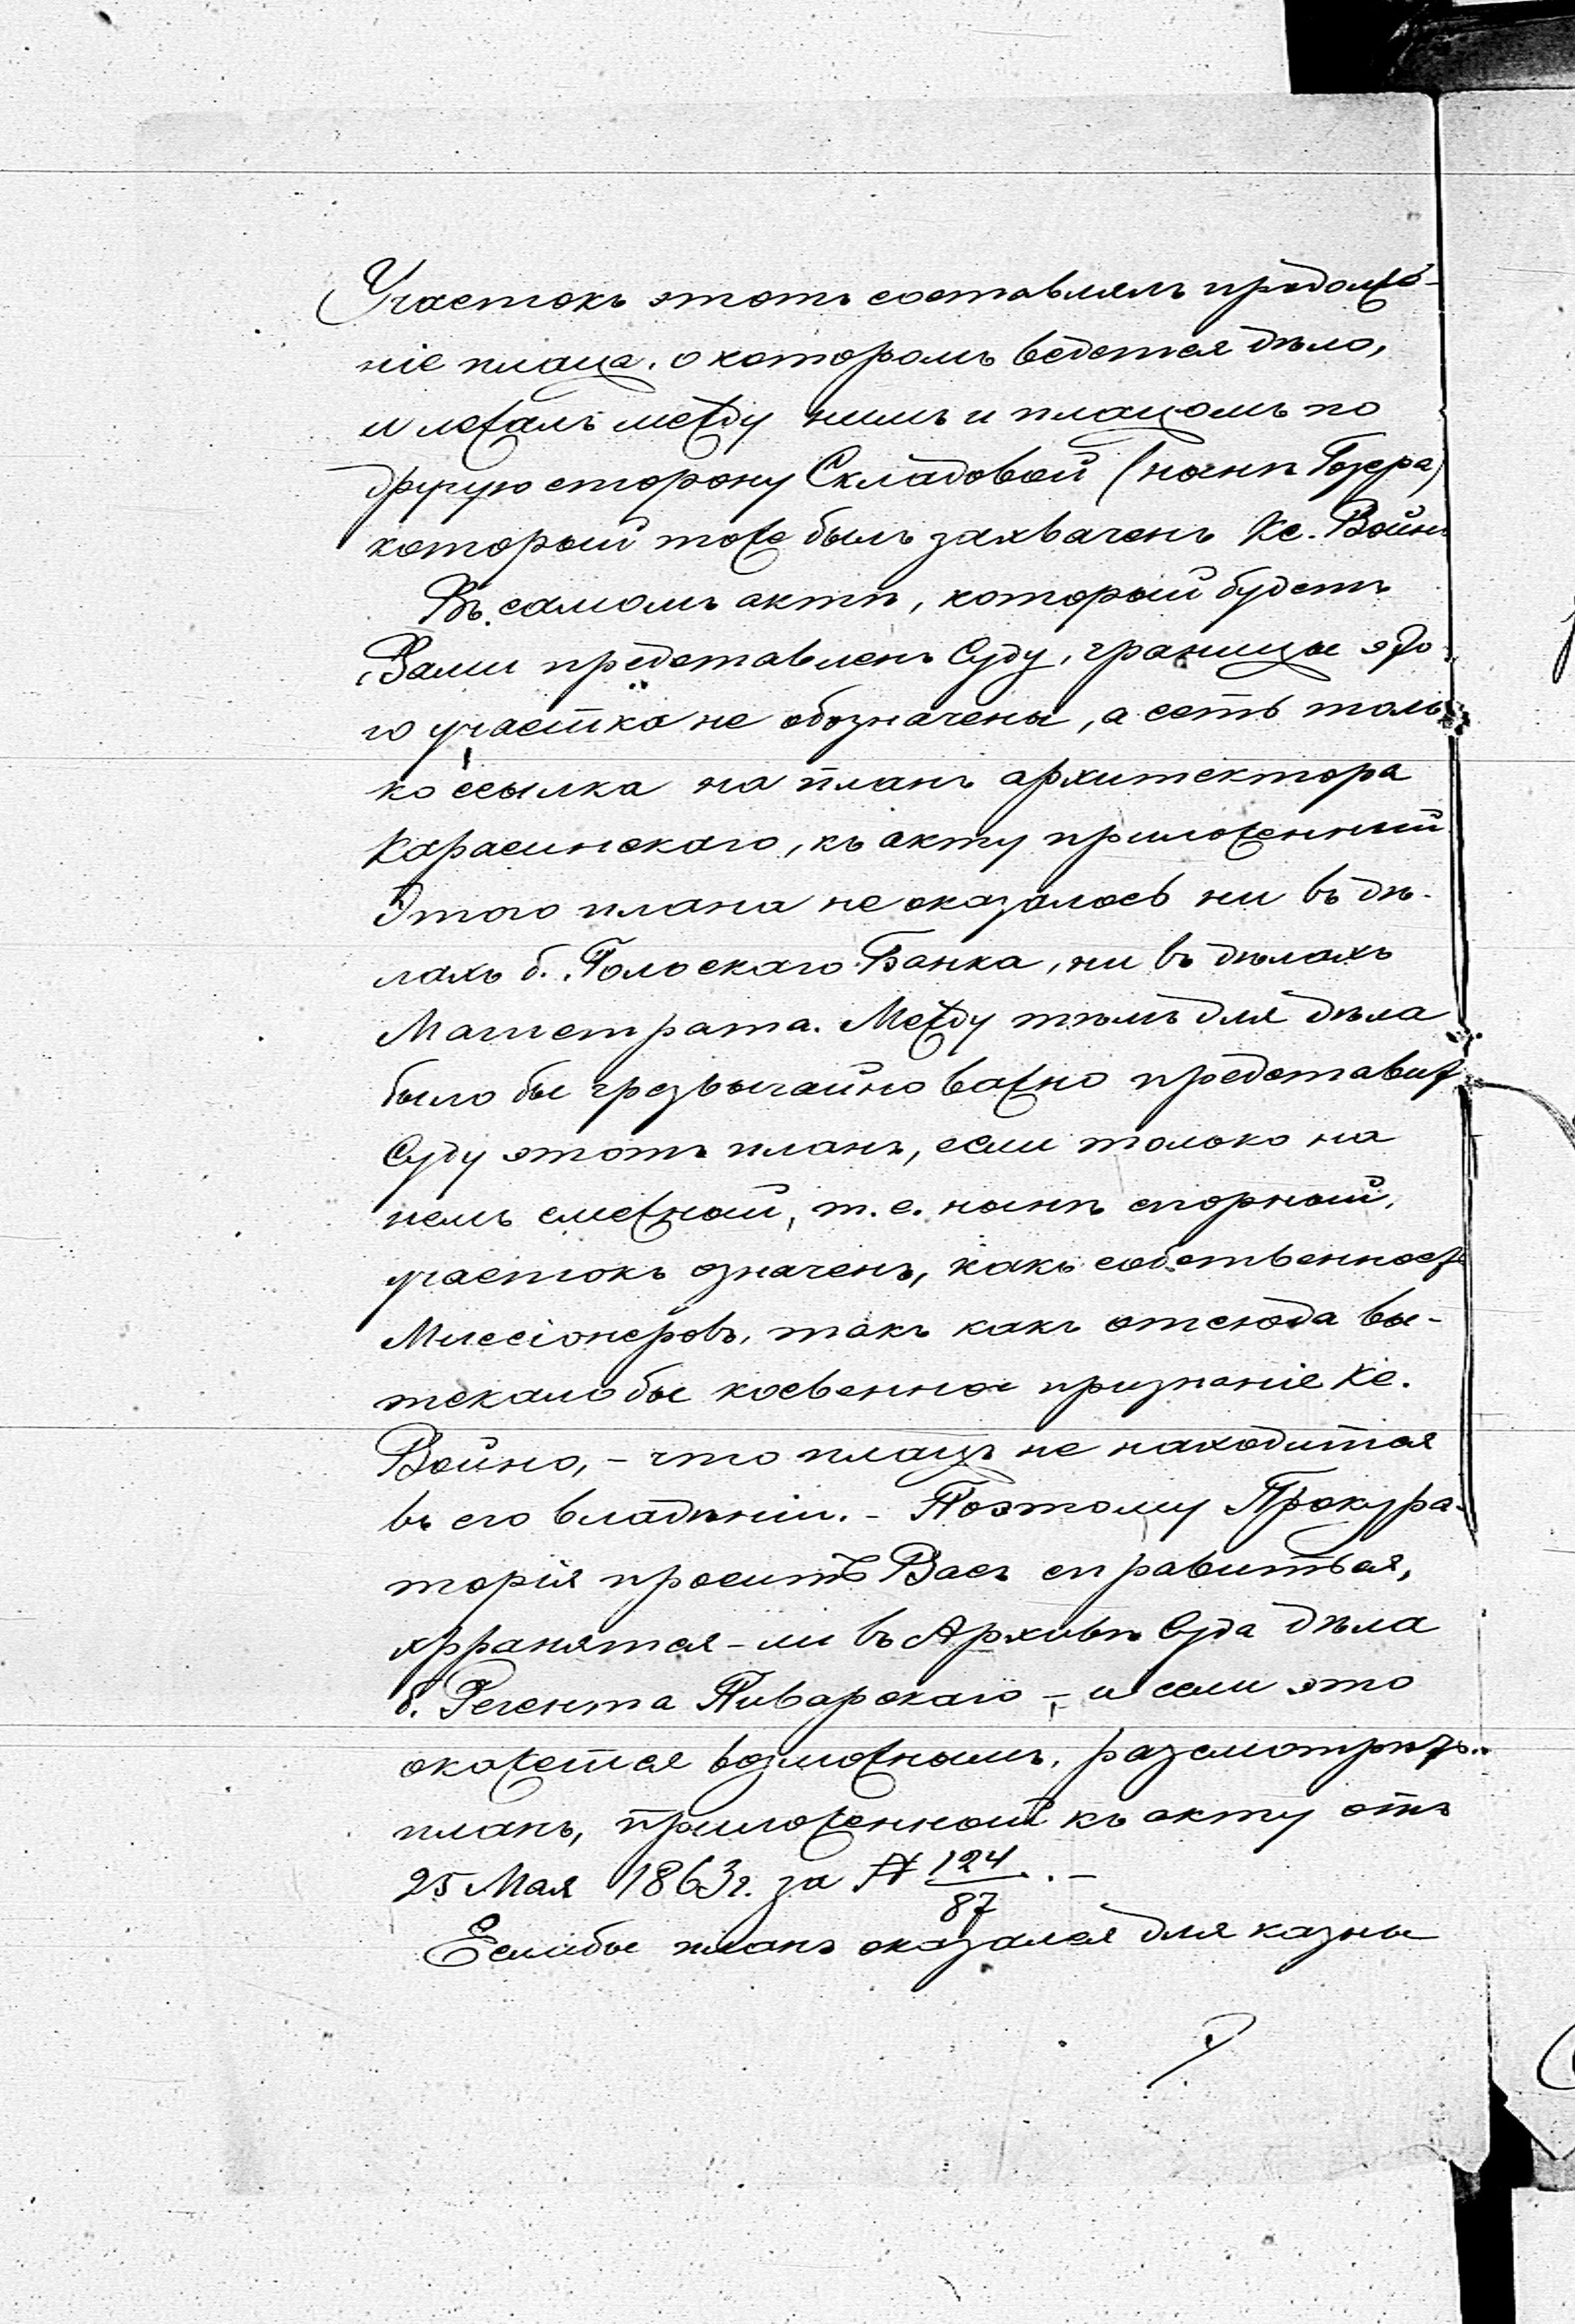 Участокъ этотъ составлялъ продолже-
ніе плаца, о которомъ ведется дѣло,
и лежалъ между нимъ и плацомъ по
другую сторону Складовой (нынѣ
который тоже былъ захваченъ Кс. Войно
Въ самомъ актѣ, который будетъ
Вами представленъ Суду, границы это-
го участка не обозначены, а есть толь-
ко ссылка на планъ архитектора
Карасинскаго, къ акту приложенный
Этого плана не оказалось ни въ дѣ-
лахъ б. Польскаго Банка, ни въ дѣлахъ
Магистрата. Между тѣмъ для дѣла
было бы чрезвычайно важно представить
Суду этотъ планъ, если только на
немъ смежный, т.е. нынѣ спорный,
участокъ означенъ, какъ собственность
Миссіонеровъ, такъ какъ отсюда вы-
текало бы косвенное признаніе Кс.
Войно, - что плацъ не находится
въ его владѣніи. - Поэтому Прокура-
торія проситъ Васъ справиться,
хранятся-ли въ Архивѣ Суда дѣла
б. Регента Пиварскаго - и если это
окажется возможнымъ, разсмотрѣть
планъ, приложенный къ акту отъ
25 Мая 1863 г. за № 124/87. -
Еслибы планъ оказался для казны